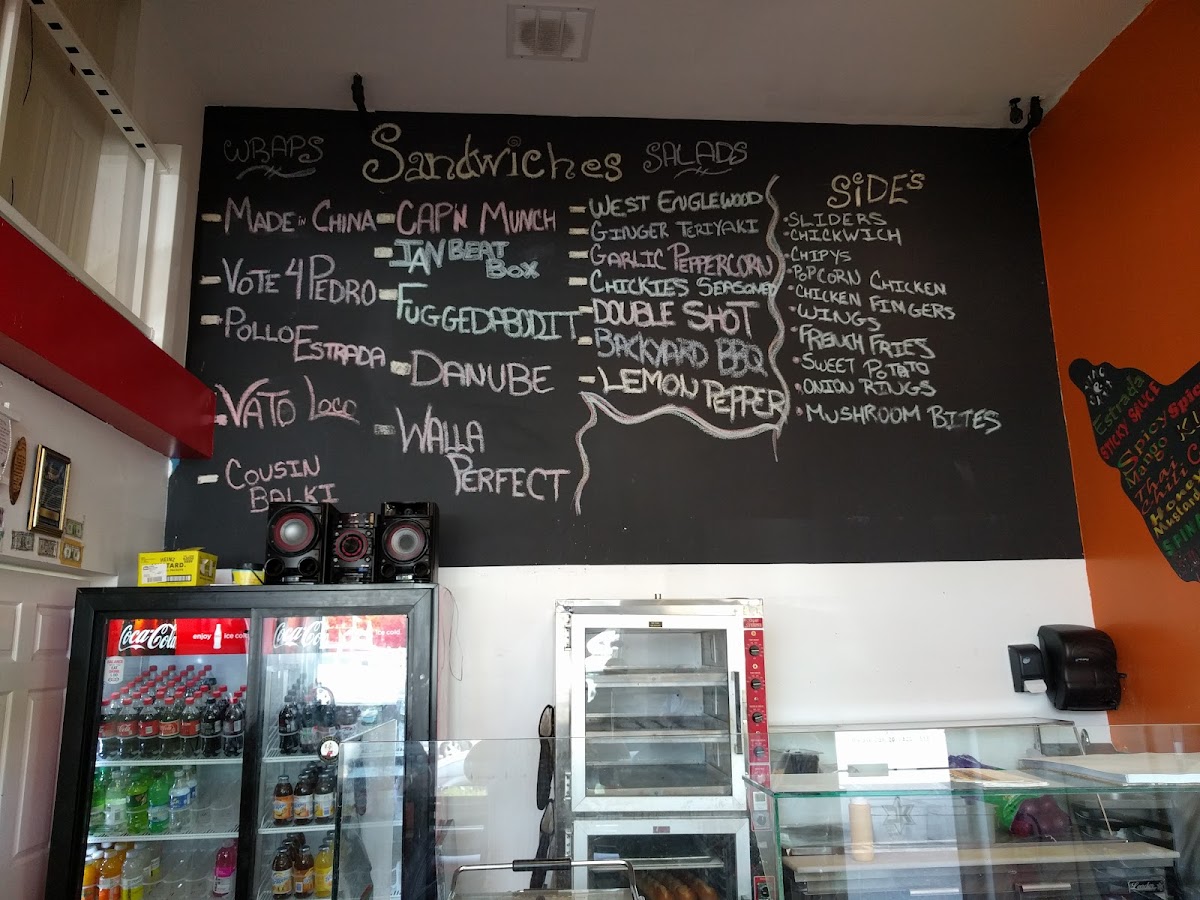 WRAPS
MADE in CHINA
VOTE 4 PEDRO
POLLO
ESTRADA
VATO LOCO
COUSIN
BALKI
Sandwiches
CAP'N MUNCH
IAN BEAT
BOX
FUGGEDABODIT
DANUBE
WALLA
PERFECT
SALADS
WEST ENGLEWOOD
GINGER TERIYAKI
GARLIC PEPPERCORN
CHICKIES SEASONED
DOUBLE SHOT
BACKYARD BBQ
LEMON PEPPER
SiDE's
•SLIDERS
•CHICKWICH
•CHIPYS
•POPCORN CHICKEN
•CHICKEN FINGERS
•WINGS
•FRENCH FRIES
•SWEET POTATO
•ONION RINGS
•MUSHROOM BITES
Estrada
STICKY SAUCE
Spicy
Mango
Thai
Chili
Honey
Mustard
HEINZ
Coca-Cola
enjoy ice cold
Coca-Cola
ice cold.